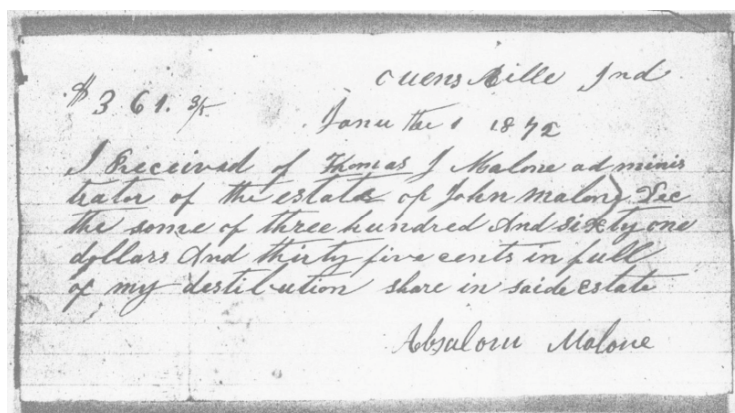 Owensville Ind
$361.35
Janu the 1 1872
I Received of Thomas J Malone adminis
trator of the estate of John Malone Dec
the some of three hundred And sixty one
dollars And thirty five cents in full
of my destibution share in saide estate
Absalom Malone